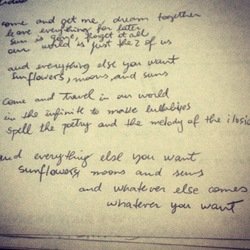 come and get me, dream together
leave everything for later
sun is gone, forget it all
our world is just the 2 of us
and everything else you want
sunflowers, moons, and suns
come and travel in our world
in the infinite to make lullabies
spell the poetry and the melody of the
and everything else you want
sunflowers, moons and suns
and whatever else comes
whatever you want